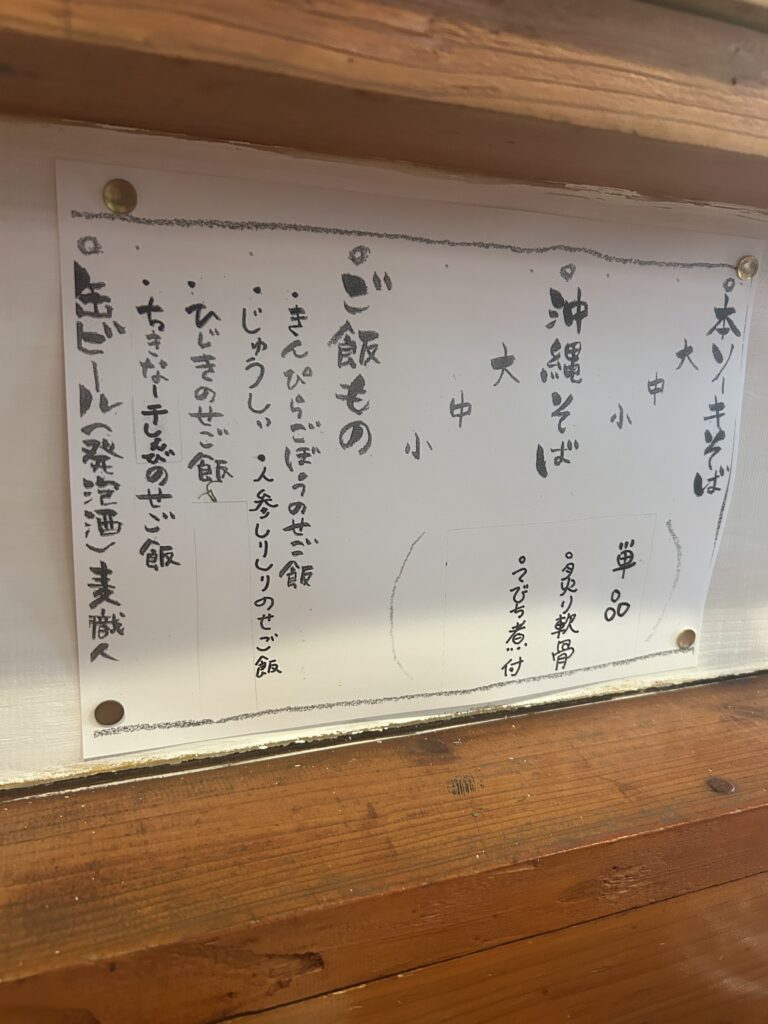 本ソーキそば
大
中
小
単品
・炙り軟骨
・てびち煮付
沖縄そば
大
中
小
ご飯もの
・きんぴらごぼうのせご飯
・じゅうしぃ
・人参しりしりのせご飯
・ひじきのせご飯
・ちきなー干しえびのせご飯
缶ビール(発泡酒)麦職人